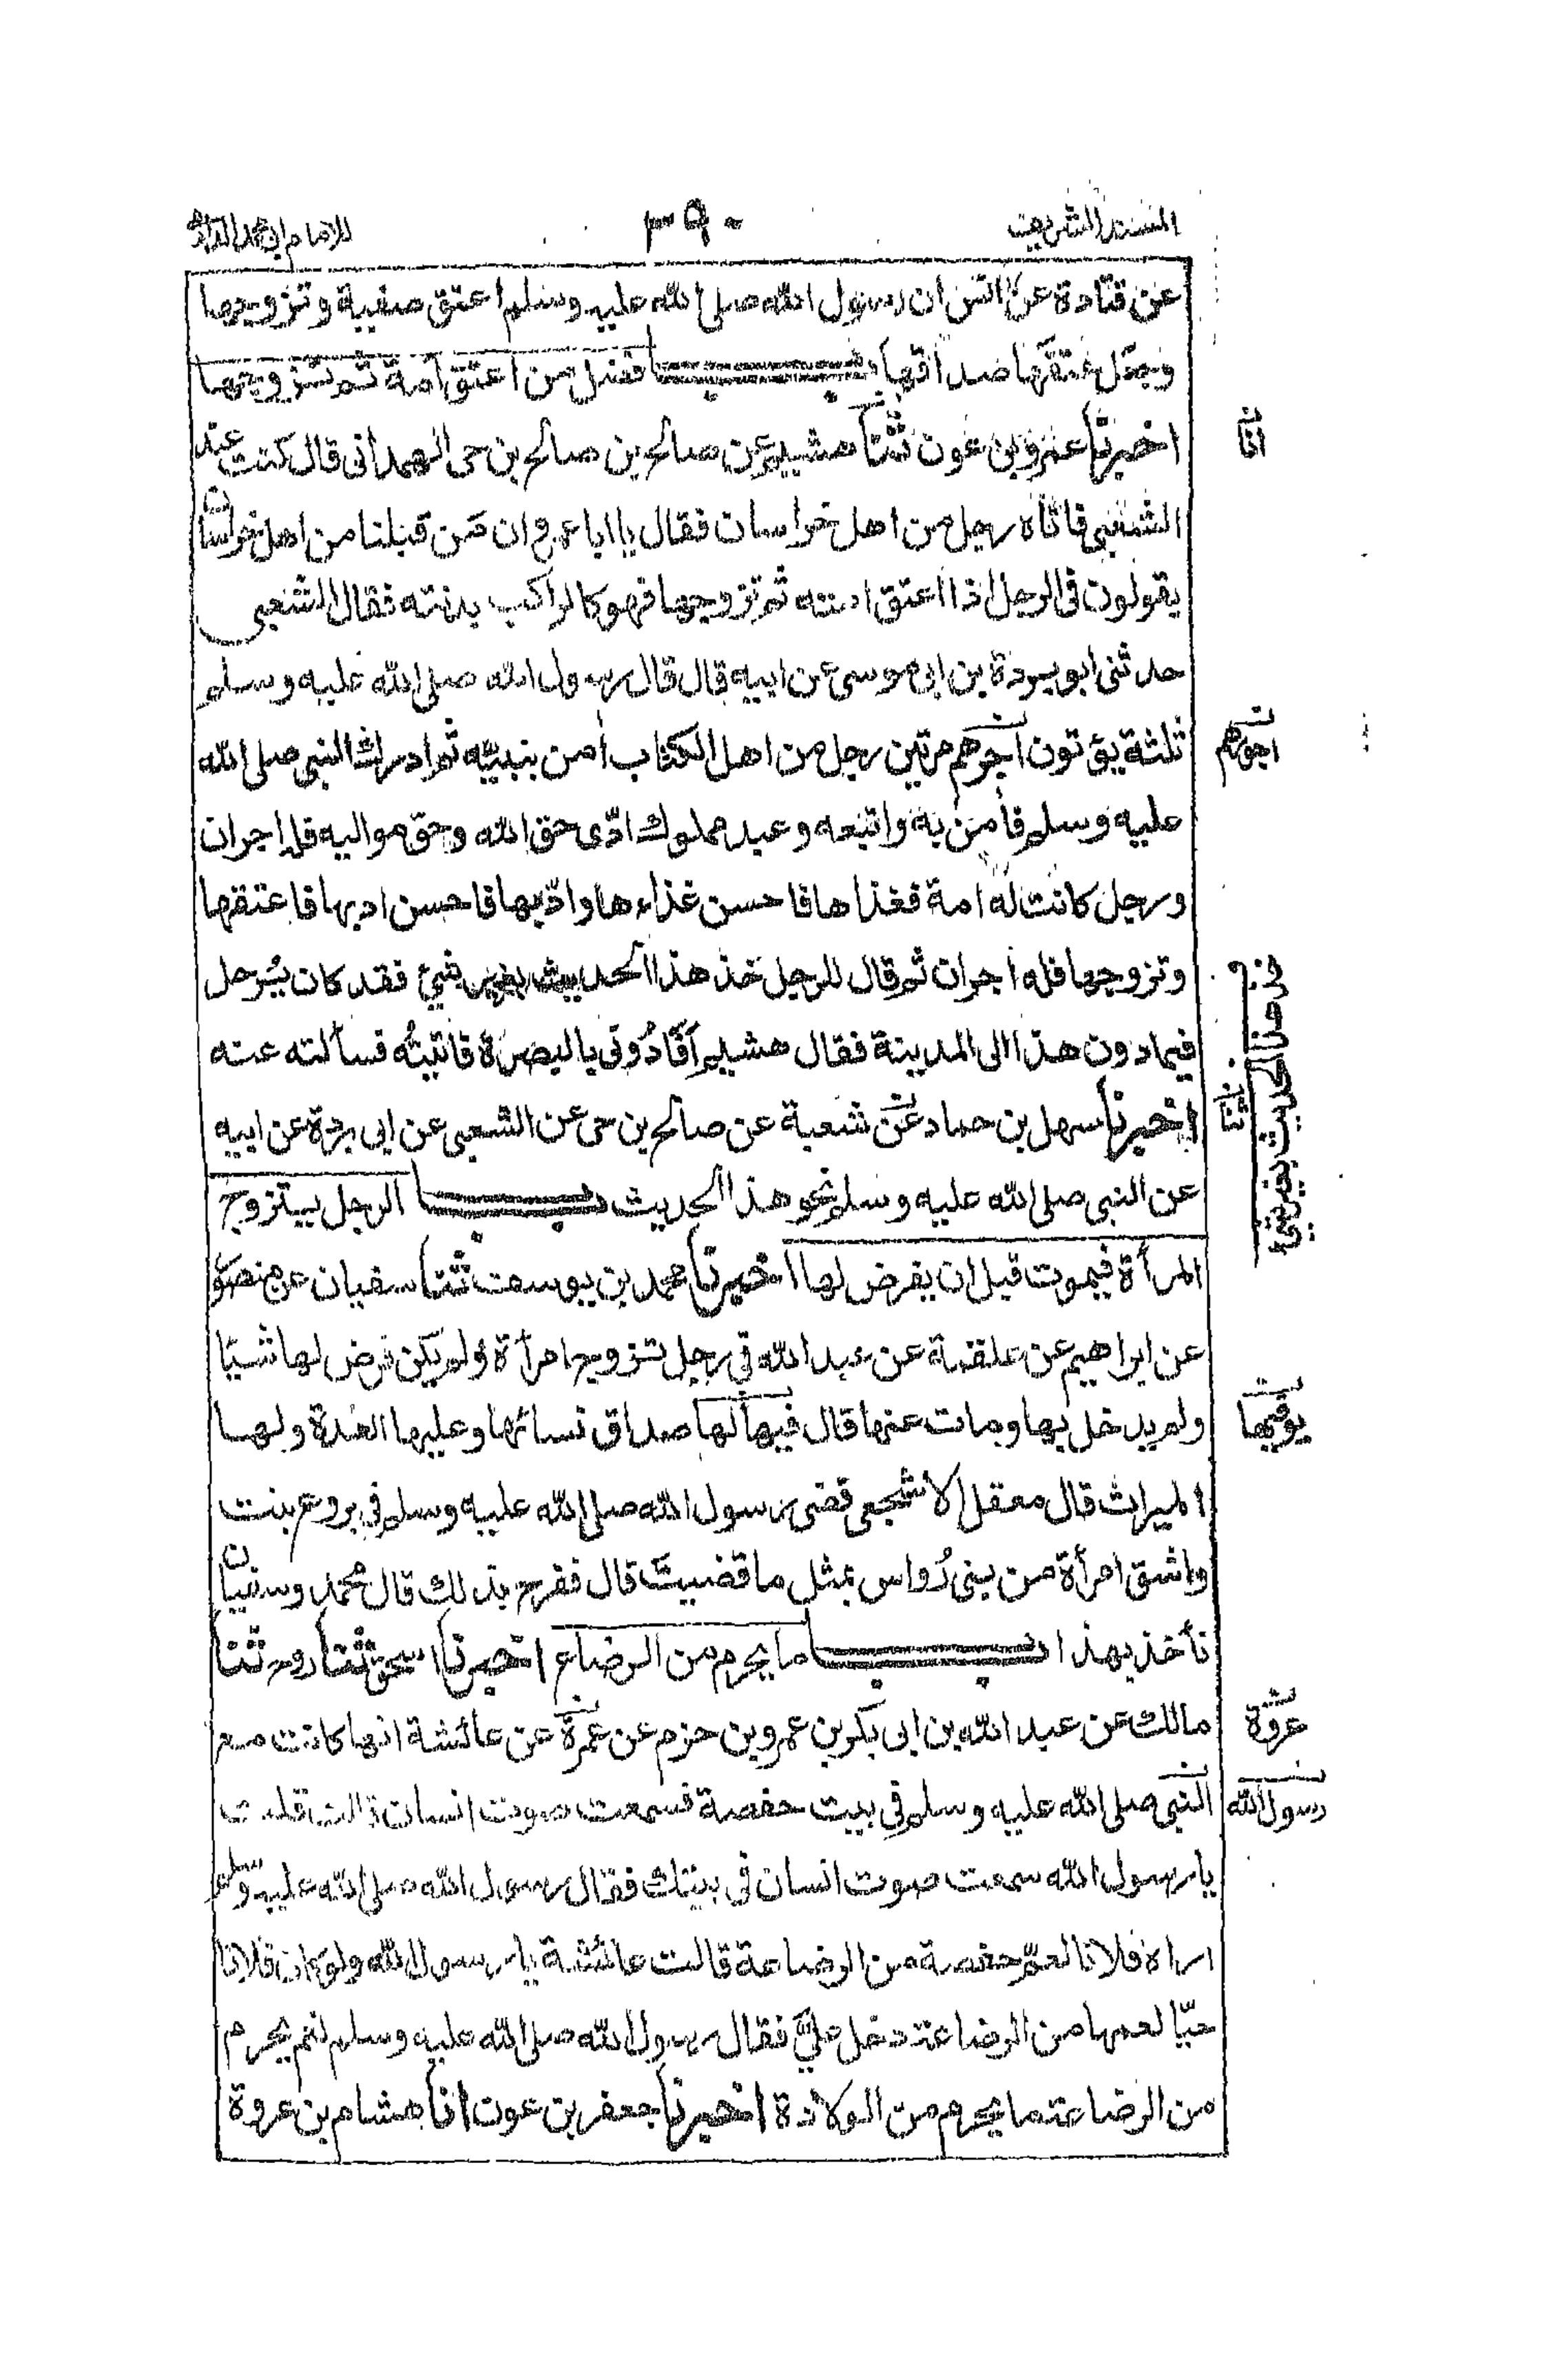 المسند الشريف
٣٩٠
للامام ابى محمد الدارمى
عن قتادة عن انس ان رسول الله صلى الله عليه وسلم اعتق صفية وتزوجها
وجعل عتقها صداقها باب فضل من اعتق امة ثم تزوجها
اخبرنا عمرو بن عون ثنا هشيم عن صالح بن صالح بن حى الهمدانى قال كنت عند
الشعبى فاتاه رجل من اهل خراسان فقال يا ابا عمرو ان من قبلنا من اهل خراسان
يقولون فى الرجل اذا اعتق امته ثم تزوجها فهو كالراكب بدنته فقال الشعبى
حدثنى ابو بردة بن ابى موسى عن ابيه قال قال رسول الله صلى الله عليه وسلم
ثلثة يؤتون اجرهم مرتين رجل من اهل الكتاب اٰمن بنبيّه ثم ادرك النبى صلى الله
عليه وسلم فاٰمن به واتبعه وعبد مملوك ادّى حق الله وحق مواليه فله اجران
ورجل كانت له امة فغذاها فاحسن غذاءها وادّبها فاحسن ادبها فاعتقها
وتزوجها فله اجران ثم قال للرجل خذ هذا الحديث بغير شئ فقد كان يُرحل
فيما دون هذا الى المدينة فقال هشيم اَفَادُونى بالبصرة فاتيتُه فسألته عنه
اخبرنا سهل بن حماد عن شعبة عن صالح بن حى عن الشعبى عن ابى بردة عن ابيه
عن النبى صلى الله عليه وسلم نحو هذا الحديث باب الرجل يتزوج
المرأة فيموت قبل ان يفرض لها اخبرنا محمد بن يوسف ثنا سفيان عن منصور
عن ابراهيم عن علقمة عن عبد الله فى رجل تزوج امرأة ولم يكن فرض لها شيئا
ولم يدخل بها ومات عنها قال فيها لها صداق نسائها وعليها العدة ولها
الميراث قال معقل الاشجعى قضى رسول الله صلى الله عليه وسلم فى بروع بنت
واشق امرأة من بنى رُواس بمثل ما قضيتَ قال ففرح بذلك قال محمد وسفيان
نأخذ بهذا باب ما يحرم من الرضاع اخبرنا اسحق ثنا روح ثنا
مالك عن عبد الله بن ابى بكر بن عمرو بن حزم عن عمرة عن عائشة انها كانت مع
النبى صلى الله عليه وسلم فى بيت حفصة فسمعت صوت انسان قالت قلت
يا رسول الله سمعت صوت انسان فى بيتك فقال رسول الله صلى الله عليه وسلم
اراه فلانا لعمّ حفصة من الرضاعة قالت عائشة يا رسول الله ولو كان فلانا
حيّا لعمها من الرضاعة دخل علىّ فقال رسول الله صلى الله عليه وسلم نعم يحرم
من الرضاعة ما يحرم من الولادة اخبرنا جعفر بن عون انا هشام بن عروة
انا
اجورهم
خذ هذا الحديث بغير شئ
ثنا
عروة
رسول الله